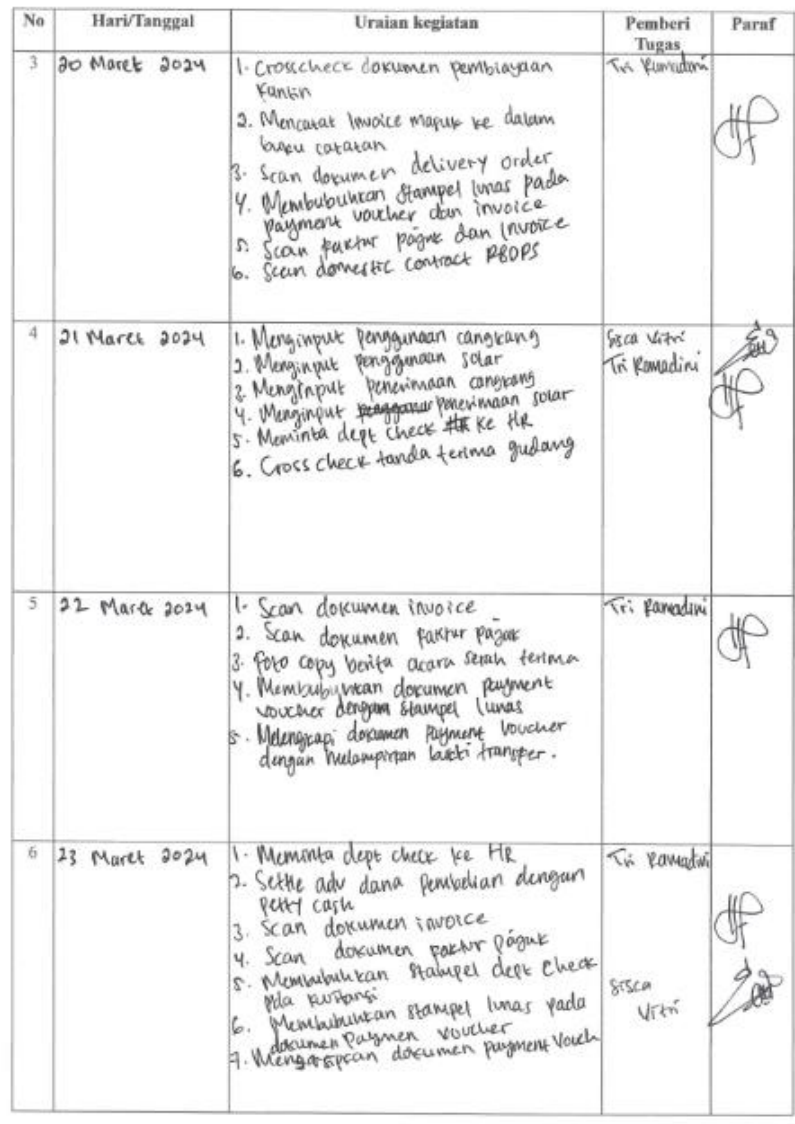 No Hari/Tanggal Uraian kegiatan Pemberi Tugas Paraf
3 20 Maret 2024 1. Crosscheck dokumen pembiayaan Tri Ramadini
Kantin
2. Mencatat Invoice masuk ke dalam
buku catatan
3. Scan dokumen delivery order
4. Membubuhkan stampel lunas pada
payment voucher dan invoice
5. Scan faktur pajak dan Invoice
6. Scan domestic contract
4 21 Maret 2024 1. Menginput penggunaan cangkang Sisca Vitri
2. Menginput penggunaan solar Tri Ramadini
3. Menginput penerimaan cangkang
4. Menginput penerimaan solar
5. Meminta dept check ke HR
6. Cross check tanda terima gudang
5 22 Maret 2024 1. Scan dokumen invoice Tri Ramadini
2. Scan dokumen faktur pajak
3. Foto copy berita acara serah terima
4. Membubuhkan dokumen payment
voucher dengan stampel lunas
5. Melengkapi dokumen Payment Voucher
dengan melampirkan bukti transper.
6 23 Maret 2024 1. Meminta dept check ke HR Tri Ramadini
2. Settle adv dana Pembelian dengan
petty cash
3. Scan dokumen invoice
4. Scan dokumen faktur pajak
5. Membubuhkan stampel dept check Sisca
pda kwitansi Vitri
6. Membubuhkan stampel lunas pada
dokumen Paymen voucher
7. Mengarsipkan dokumen payment Vouch